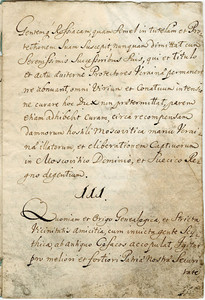 Gentemq
quam semel in tutelam et Pro-
tectionem Suam Suscepit, nunquam dimittat cum
Serenissimis Successoribus Suis, qui et Titulo
et actu
Protectores Ucrainæ permanent
ne
omni Virium et Conatuum inten-
ne curare hoc Dux non prætermittat, parem
etiam adhibebit Curam, circa recompensam
damnorum hostili Moscovitica manu Ucrai-
næ illatorum et eliberationem Captivorum
in Moscovitico Dominio, et Suecico Re-
gno degentium.
III.
Quoniam ex Origo Genealogica, et Stricta
Vicinitatis amicitia, cum invicta gente Scy-
thica ab antiquo Cosacos
pro meliori et fortiori Patriæ nostræ Securi-
tate